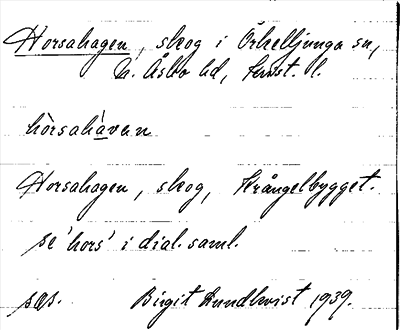 Horsahagen, skog i Örkelljunga sn,
N. Åsbo hd, Krist. l.
hòrsahàven
Horsahagen, skog, Krångelbygget.
se 'hors' i dial. saml.
sgs. Birgit Lundkvist 1939.